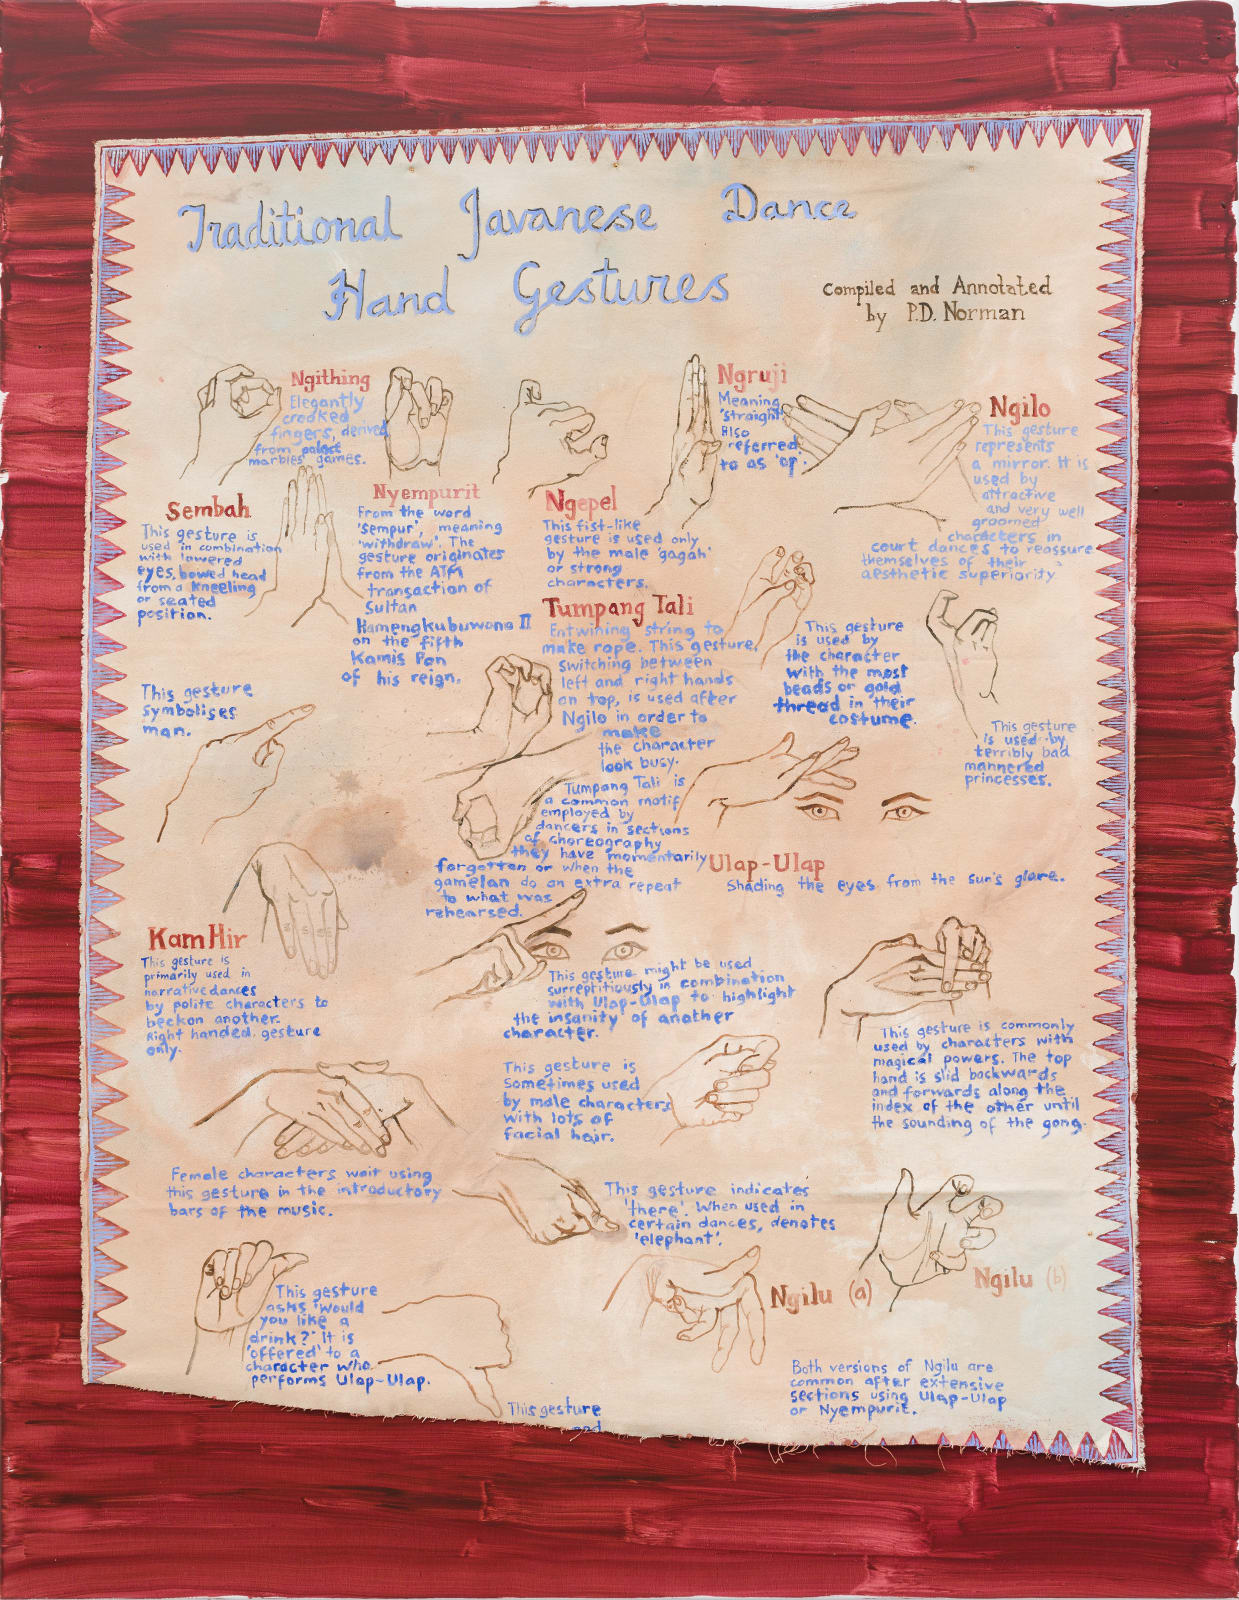 Traditional Javanese Dance
Hand Gestures
Compiled and Annotated
by P.D. Norman
Ngithing
Elegantly
crooked
fingers, derived
from palace
marbles games.
Ngruji
Meaning
'straight'.
Also
referred
to as 'op'.
Ngilo
This gesture
represents
a mirror. It is
used by
attractive
and very well
groomed
characters in
court dances to reassure
themselves of their
aesthetic superiority.
Sembah
This gesture is
used in combination
with lowered
eyes, bowed head
from a kneeling
or seated
position.
Nyempurit
From the word
'Sempur', meaning
'withdraw'. The
gesture originates
from the ATM
transaction of
Sultan
Hamengkubuwono II
on the fifth
Kamis Pon
of his reign.
Ngepel
This fist-like
gesture is used only
by the male 'gagah'
or strong
characters.
Tumpang Tali
Entwining string to
make rope. This gesture,
switching between
left and right hands
on top, is used after
Ngilo in order to
make
the character
look busy.
Tumpang Tali is
a common motif
employed by
dancers in sections
of choreography
they have momentarily
forgotten or when the
gamelan do an extra repeat
to what was
rehearsed.
This gesture
is used by
the character
with the most
beads or gold
thread in their
costume.
This gesture
is used by
terribly bad
mannered
princesses.
This gesture
symbolises
man.
Ulap-Ulap
Shading the eyes from the sun's glare.
Kam Hir
This gesture is
primarily used in
narrative dances
by polite characters to
beckon another.
Right handed gesture
only.
This gesture might be used
surreptitiously in combination
with Ulap-Ulap to highlight
the insanity of another
character.
This gesture is commonly
used by characters with
magical powers. The top
hand is slid backwards
and forwards along the
index of the other until
the sounding of the gong.
This gesture is
sometimes used
by male characters
with lots of
facial hair.
Female characters wait using
this gesture in the introductory
bars of the music.
This gesture indicates
'there'. When used in
certain dances, denotes
'elephant'.
Ngilu (a)
Ngilu (b)
This gesture
asks 'Would
you like a
drink?' It is
'offered' to a
character who
performs Ulap-Ulap.
Both versions of Ngilu are
common after extensive
sections using Ulap-Ulap
or Nyempurit.
This gesture